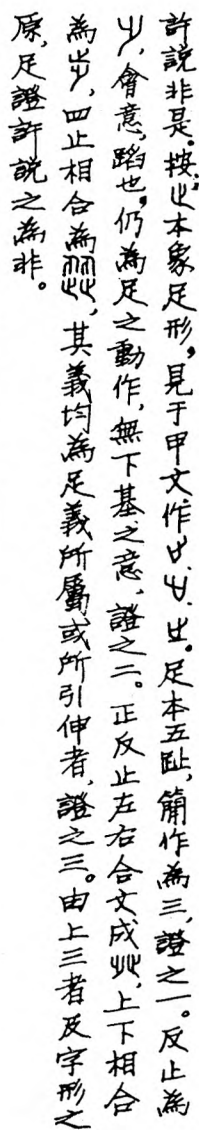 許說非是。按止本象足形，見于甲文作𣥂、止、止。足本五趾，簡作為三，證之一。反止為
𣥂，會意，蹈也，仍為足之動作，無下基之意，證之二。正反止左右合文成癶，上下相合
為步，四止相合為歰，其義均為足義所屬或所引伸者，證之三。由上三者及字形之
原，足證許說之為非。